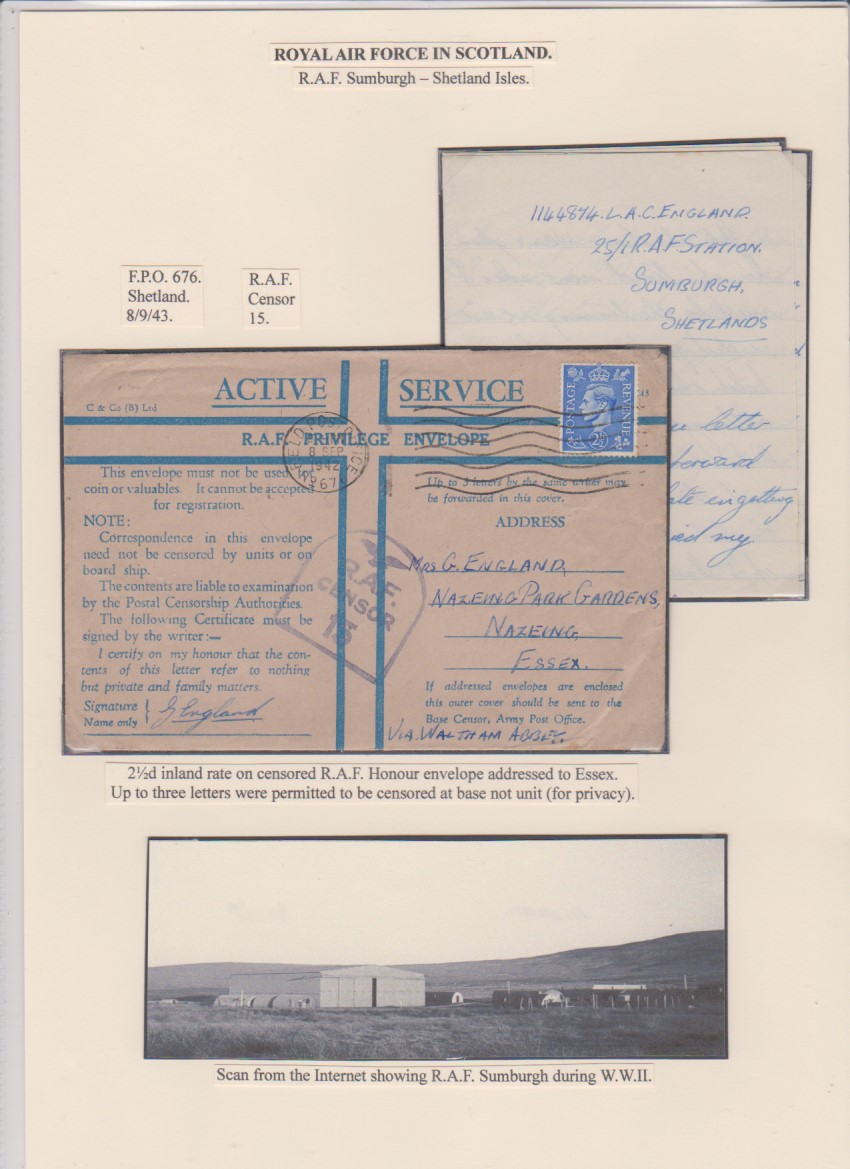 ROYAL AIR FORCE IN SCOTLAND.
R.A.F. Sumburgh – Shetland Isles.
1144874. L.A.C. ENGLAND.
25/1 R.A.F STATION.
SUMBURGH,
SHETLANDS
letter
forward
in getting
my
F.P.O. 676.
Shetland.
8/9/43.
R.A.F.
Censor
15.
ACTIVE SERVICE
C & Co (B) Ltd
R.A.F. PRIVILEGE ENVELOPE
POSTAGE
REVENUE
2½D
FIELD POST OFFICE
8 SEP
1942
67
This envelope must not be used for
coin or valuables. It cannot be accepted
for registration.
NOTE:
Correspondence in this envelope
need not be censored by units or on
board ship.
The contents are liable to examination
by the Postal Censorship Authorities.
The following Certificate must be
signed by the writer:—
I certify on my honour that the con-
tents of this letter refer to nothing
but private and family matters.
Signature
Name only
G England
R.A.F.
CENSOR
15
Up to 3 letters by the same writer may
be forwarded in this cover.
ADDRESS
MRS G. ENGLAND,
NAZEING PARK GARDENS,
NAZEING,
ESSEX.
If addressed envelopes are enclosed
this outer cover should be sent to the
Base Censor, Army Post Office.
VIA. WALTHAM ABBEY.
2½d inland rate on censored R.A.F. Honour envelope addressed to Essex.
Up to three letters were permitted to be censored at base not unit (for privacy).
Scan from the Internet showing R.A.F. Sumburgh during W.W.II.